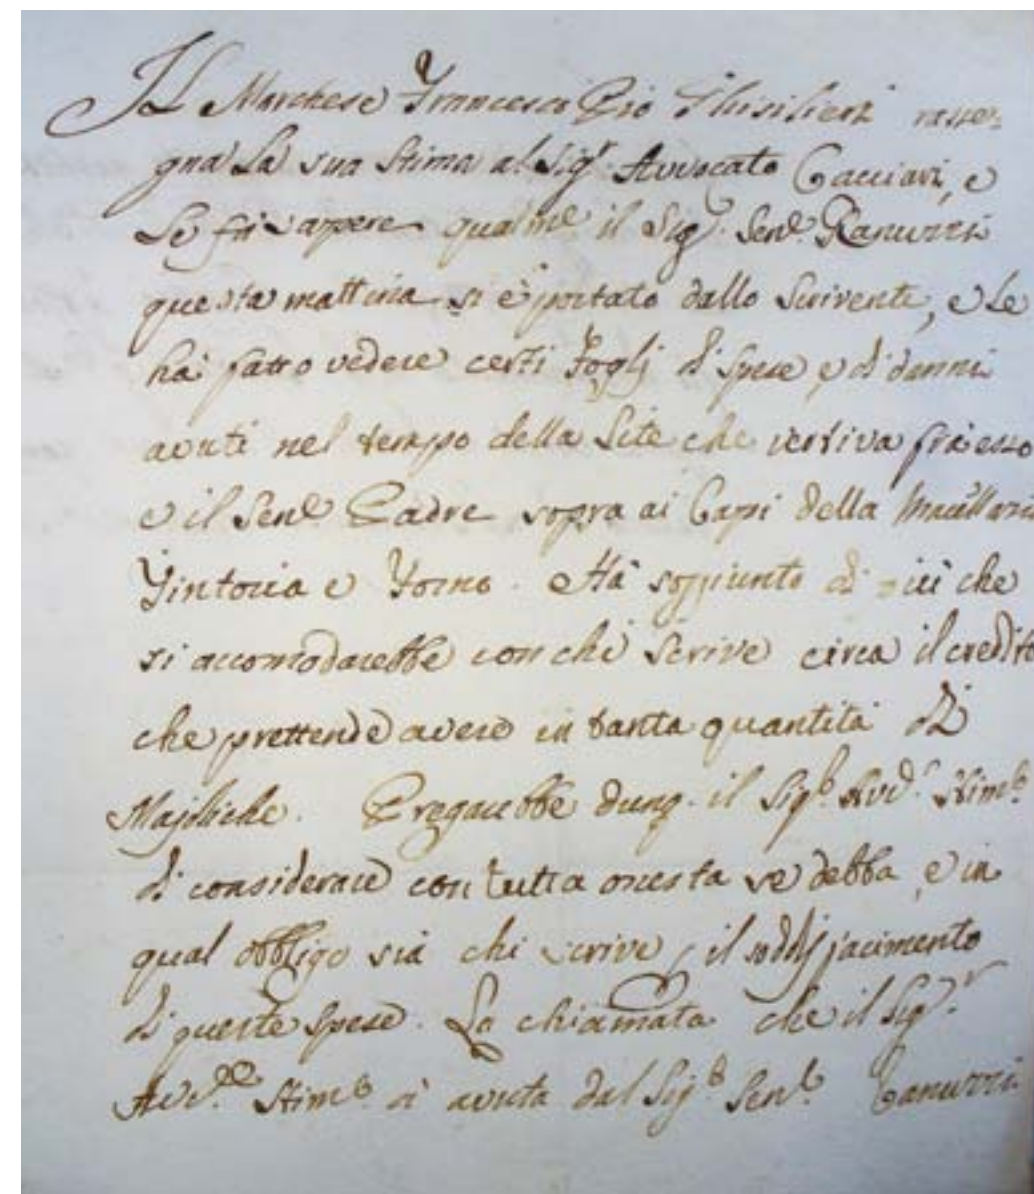 Il Marchese Francesco Pio Ghisilieri rasse-
gna La sua stima al Sig.r Avvocato Cacciari, e
Le fà sapere qualm.e il Sig.r Sen.e Ranuzzi
questa mattina si è portato dallo Scrivente, e Le
hà fatto vedere certi Foglj di spese, e di danni
avuti nel tempo della Lite che vertiva frà esso
e il Sen.e Padre sopra ai Capi della
Tintoria e Forno. Hà soggiunto di più che
si accomodarebbe con chi scrive circa il credito
che prettende avere in tanta quantità di
Majoliche. Pregarebbe dunq. il Sig.e Avv.o Stim.o
di considerare con tutta onestà se debba, e in
qual obbligo sia chi scrive, il soddisfacimento
di queste spese. La chiamata che il Sig.r
Avv.o Stim.o à avuta dal Sig.e Sen.e Ranuzzi